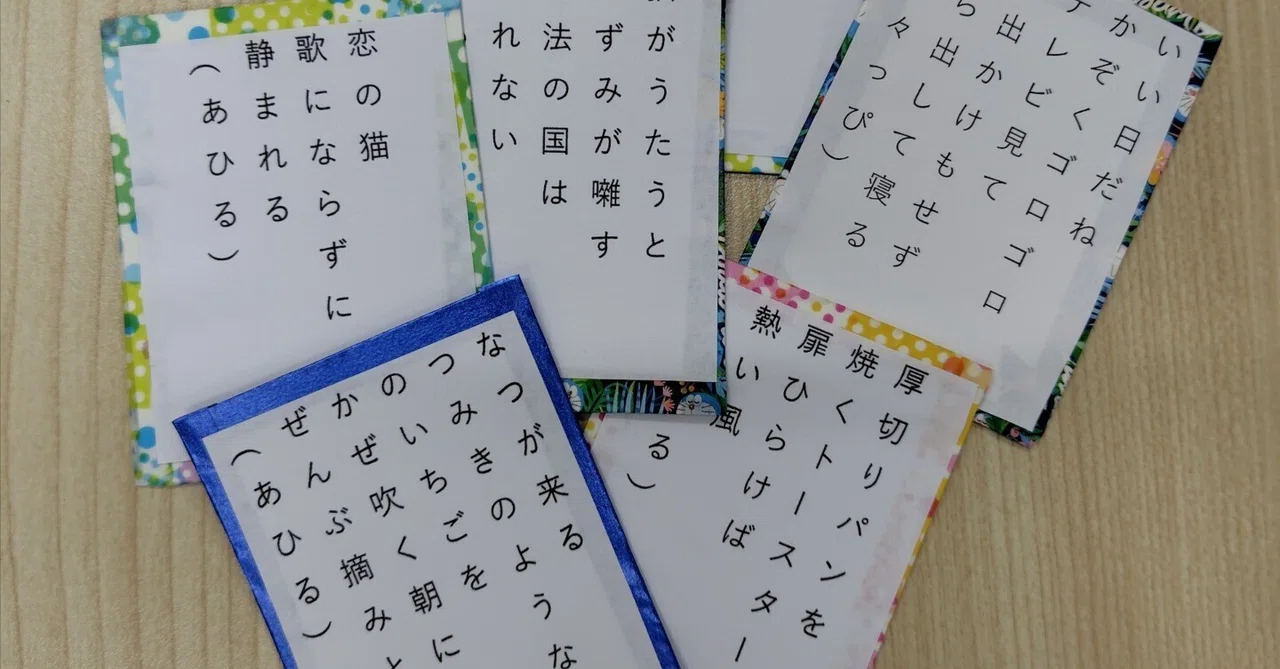 恋の猫
歌にならずに
静まれる
(あひる)
がうたうと
ずみが囃す
法の国は
れない
いい日だね
かぞくゴロゴロ
テレビ見て
出かけもせず
ら出して寝る
々っぴ)
厚切りパンを
焼くトースター
扉ひらけば
熱い風
る)
なつが来る
つみきのような
のいちごを
かぜ吹く朝に
ぜんぶ摘みと
(あひる)